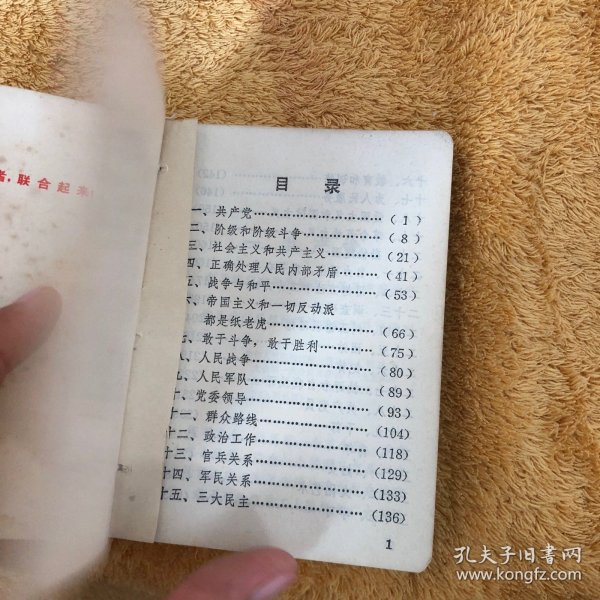 者，联合起来！
目 录
一、共产党……(1)
二、阶级和阶级斗争……(8)
三、社会主义和共产主义……(21)
四、正确处理人民内部矛盾……(41)
五、战争与和平……(53)
六、帝国主义和一切反动派
都是纸老虎……(66)
七、敢于斗争，敢于胜利……(75)
八、人民战争……(80)
九、人民军队……(89)
十、党委领导……(93)
十一、群众路线……(104)
十二、政治工作……(118)
十三、官兵关系……(129)
十四、军民关系……(133)
十五、三大民主……(136)
1
孔夫子旧书网
www.kongfz.com